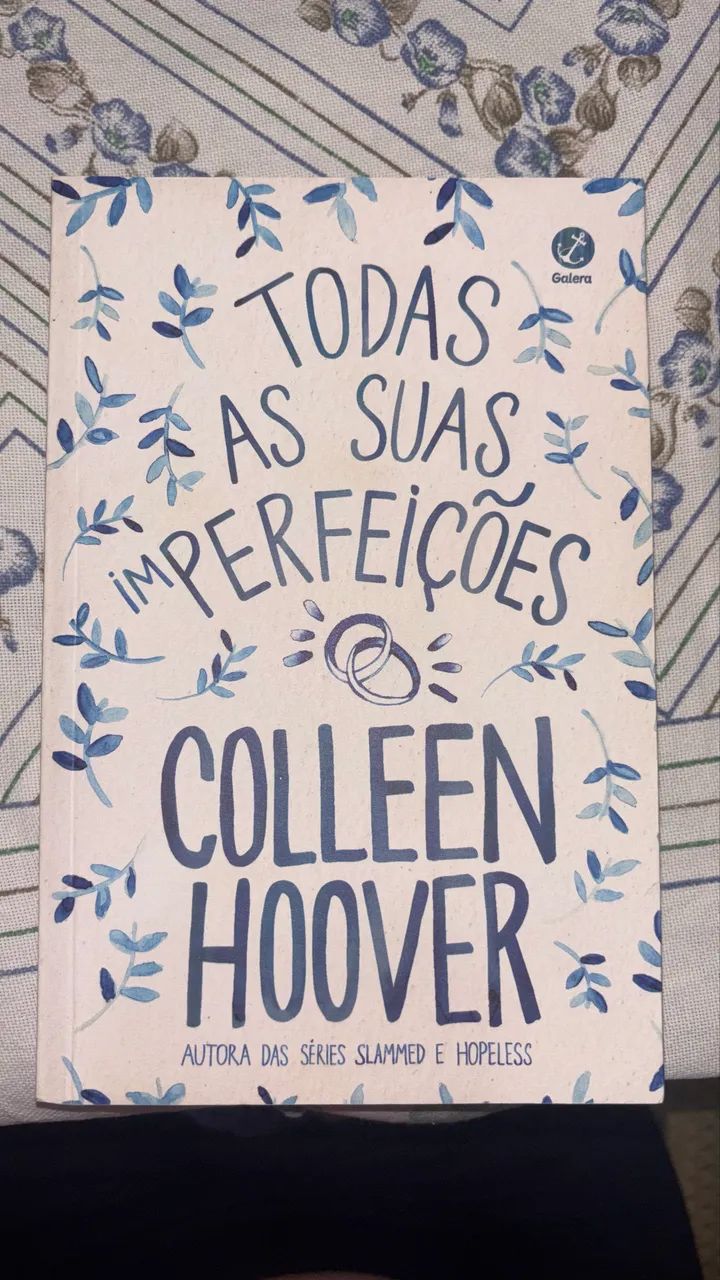 Galera
TODAS
AS SUAS
imPERFEiÇÕES
COLLEEN
HOOVER
AUTORA DAS SÉRIES SLAMMED E HOPELESS